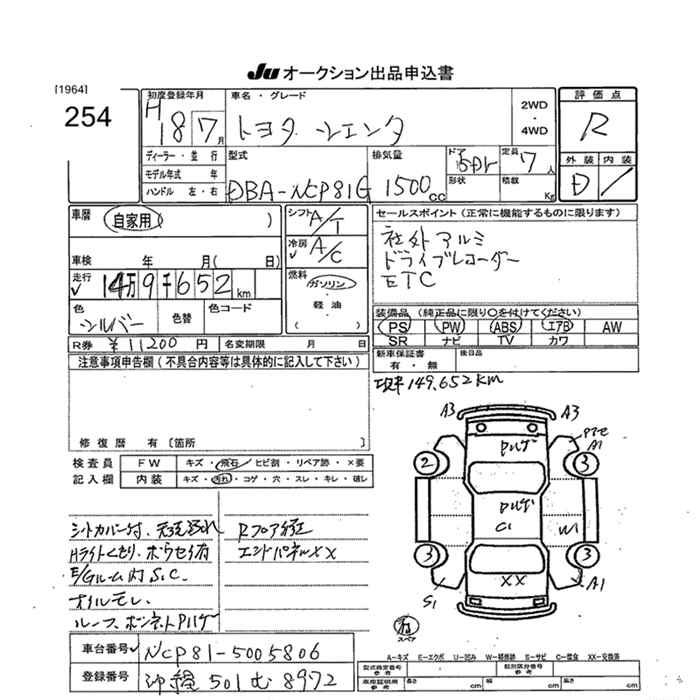 JU オークション出品申込書
[1964]
254
初度登録年月
H 18 7月
車名・グレード
トヨタ シエンタ
2WD
・
4WD
評価点
R
外装 内装
D
ディーラー・並行
モデル年式 年
ハンドル 左・右
型式
DBA-NCP81G
排気量
1500 CC
ドア 5Dr
形状
定員 7人
積載 Kg
車歴
自家用 ( )
車検 年 月( 日)
走行 14万9千652km
色 シルバー
色替
色コード
R券 ¥11200円
名変期限 月 日
シフト A/T
冷房 A/C
燃料
ガソリン
・
軽油
( )
セールスポイント(正常に機能するものに限ります)
社外アルミ
ドライブレコーダー
ETC
装備品(純正品に限り〇を付けてください)
PS PW ABS エアB AW
SR ナビ TV カワ
新車保証書
有・無
後日品
現車149,652km
注意事項申告欄(不具合内容等は具体的に記入して下さい)
修復歴 有〔箇所 〕
検査員
記入欄
FW キズ・飛石・ヒビ割・リペア跡・×要
内装 キズ・汚れ・コゲ・穴・スレ・キレ・破レ
シートカバー付、天張汚れ
Hライトくもり、ボウセイ有
E/Gルーム内S.C.
オイルモレ、
ルーフ、ボンネットPハゲ
Rフロア修正
エンドパネルXX
A3 A3
Pハゲ
A1
2 3
Pハゲ
C1 W1
3 3
XX
S1 A1
有
スペア
A-キズ E-エクボ U-凹み W-補修跡 S-サビ C-腐食 XX-交換済
車台番号 NCP81-5005806
登録番号 沖縄 501 む 8972
型式指定番号
類別区分番号
車庫証明用
長さ cm 幅 cm 高さ cm